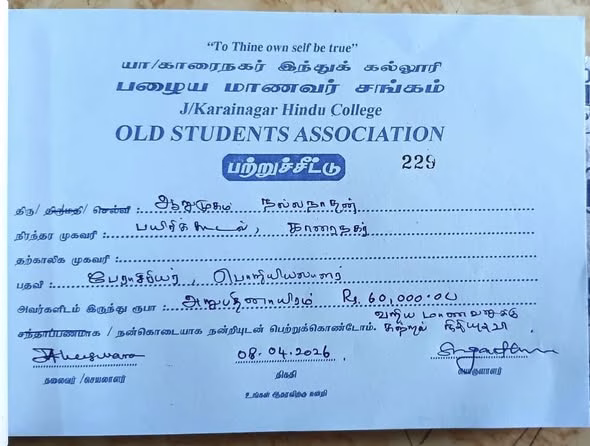 “To Thine own self be true”
யா/காரைநகர் இந்துக் கல்லூரி
பழைய மாணவர் சங்கம்
J/Karainagar Hindu College
OLD STUDENTS ASSOCIATION
பற்றுச்சீட்டு 229
திரு/ திருமதி/ செல்வி : ஆறுமுகம் நல்லநாதன்
நிரந்தர முகவரி : காரைநகர்
தற்காலிக முகவரி :
பதவி : பேராசிரியர், பொறியியலாளர்
அவர்களிடம் இருந்து ரூபா : அறுபதினாயிரம் Rs. 60,000.00
வறிய மாணவருக்கு
சந்தாப்பணமாக / நன்கொடையாக நன்றியுடன் பெற்றுக்கொண்டோம். கற்றல் நிதியுதவி
08.04.2026
தலைவர் /செயலாளர் திகதி பொருளாளர்
உங்கள் ஆதரவிற்கு நன்றி